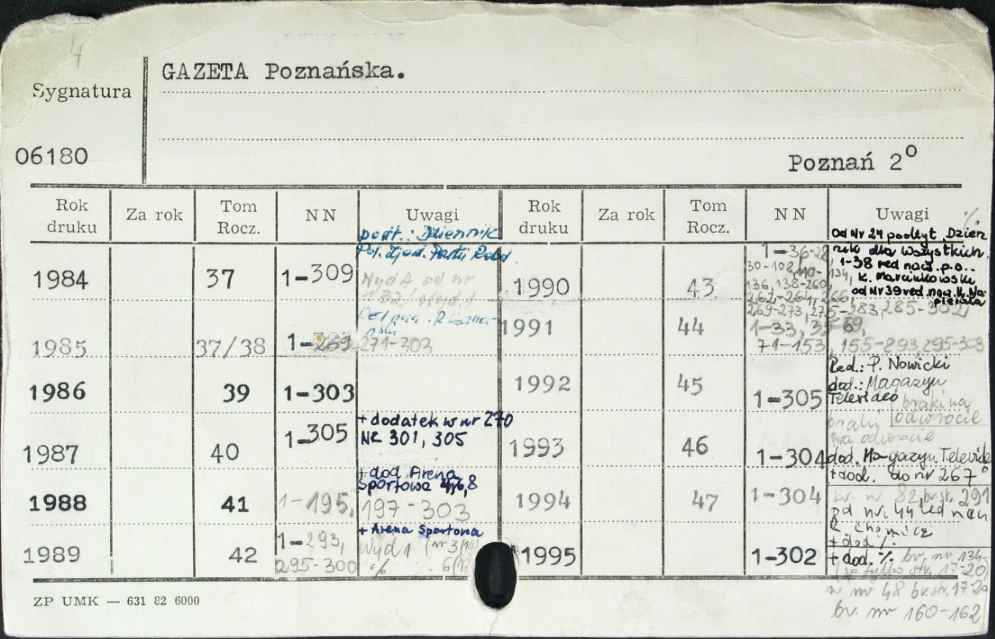 4
GAZETA Poznańska.
Sygnatura
06180
Poznań 2°
Rok druku Za rok Tom Rocz. NN Uwagi Rok druku Za rok Tom Rocz. NN Uwagi
1984 37 1-309
podt.: Dziennik
Wyd A od nr
1985 37/38 1-269 271-303
1986 39 1-303
1987 40 1-305
+ dodatek w nr 270
NR 301, 305
1988 41 1-195, 197-303
+ dod. Arena
Sportowa
1989 42 1-293,
295-300
+ Arena Sportowa
1990 43 1-36
136, 138-260,
262-264, 266,
269-273, 275-283, 285-302
%
od Nr 24 podtyt. Dzien
nik dla wszystkich.
1-38 red nacz. p.o..
K. Marcinkowski
od Nr 39 red. nacz. K. Na
pierała
1991 44 1-33, 35-69,
71-153, 155-293, 295-303
1992 45 1-305
Red.: P. Nowicki
dod.: Magazyn
Televideo
braki na
odwrocie
1993 46 1-304
braki
na odwrocie
dod. Magazyn Televide
+ dod. do nr 267
1994 47 1-304
br. nr 82, br. str. 291
od nr. 44 red nacz
+ dod %
1995 1-302
+ dod. % br. nr 134
tylko str. 17-20,
w nr 48 br. str. 17-20
br. nr 160-162
ZP UMK — 631 82 6000